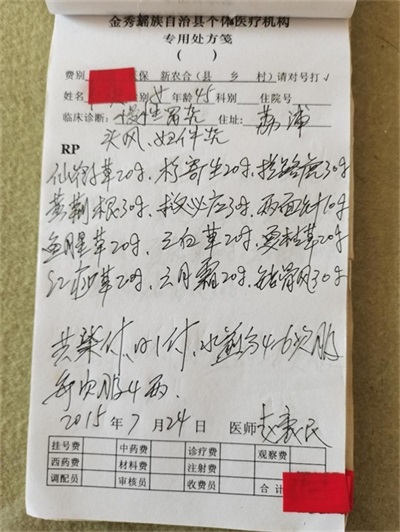 金秀瑶族自治县个体医疗机构
专用处方笺
( )
费别 医保 新农合(县 乡 村)请对号打√
姓名 女 年龄45科别 住院号
临床诊断:慢性胃炎 住址:荔浦
头风、妇件炎
RP
仙鹤草20g、 寄生20g、 30g
黄荆根30g、救必应3g、两面针10g
鱼腥草20g、三白草20g、夏枯草20g
草20g、六月霜20g、 30g
共柒付、日1付、水煎分4-6次服
每次服4两。
2015年7月24日 医师
挂号费 中药费 诊疗费 观察费
西药费 材料费 注射费
调配员 审核员 收费员 合计